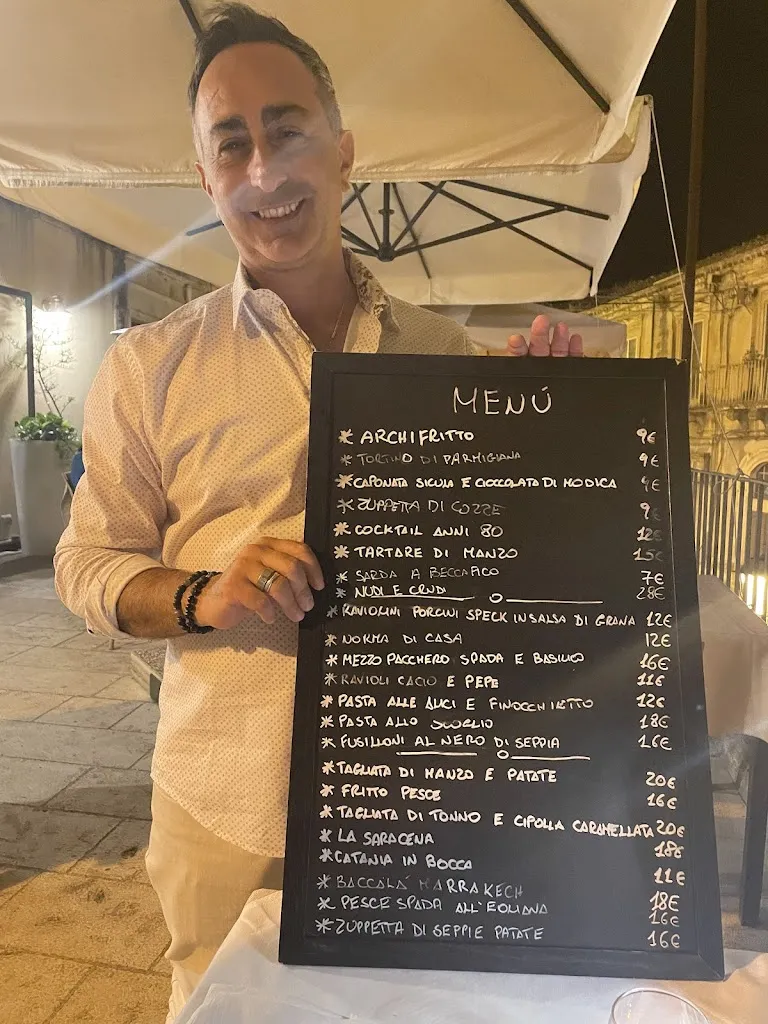 MENÚ
* ARCHIFRITTO 9€
* TORTINO DI PARMIGIANA 9€
* CAPONATA SICULA E CIOCCOLATO DI MODICA 9€
* ZUPPETTA DI COZZE 9€
* COCKTAIL ANNI 80 12€
* TARTARE DI MANZO 15€
* SARDA A BECCAFICO 7€
* NUDI E CRUDI 28€
* RAVIOLINI PORCINI SPECK IN SALSA DI GRANA 12€
* NORMA DI CASA 12€
* MEZZO PACCHERO SPADA E BASILICO 16€
* RAVIOLI CACIO E PEPE 11€
* PASTA ALLE ALICI E FINOCCHIETTO 12€
* PASTA ALLO SCOGLIO 18€
* FUSILLONI AL NERO DI SEPPIA 16€
* TAGLIATA DI MANZO E PATATE 20€
* FRITTO PESCE 16€
* TAGLIATA DI TONNO E CIPOLLA CARAMELLATA 20€
* LA SARACENA 18€
* CATANIA IN BOCCA 11€
* BACCALÁ MARRAKECH 18€
* PESCE SPADA ALL'EOLIANA 16€
* ZUPPETTA DI SEPPIE PATATE 16€